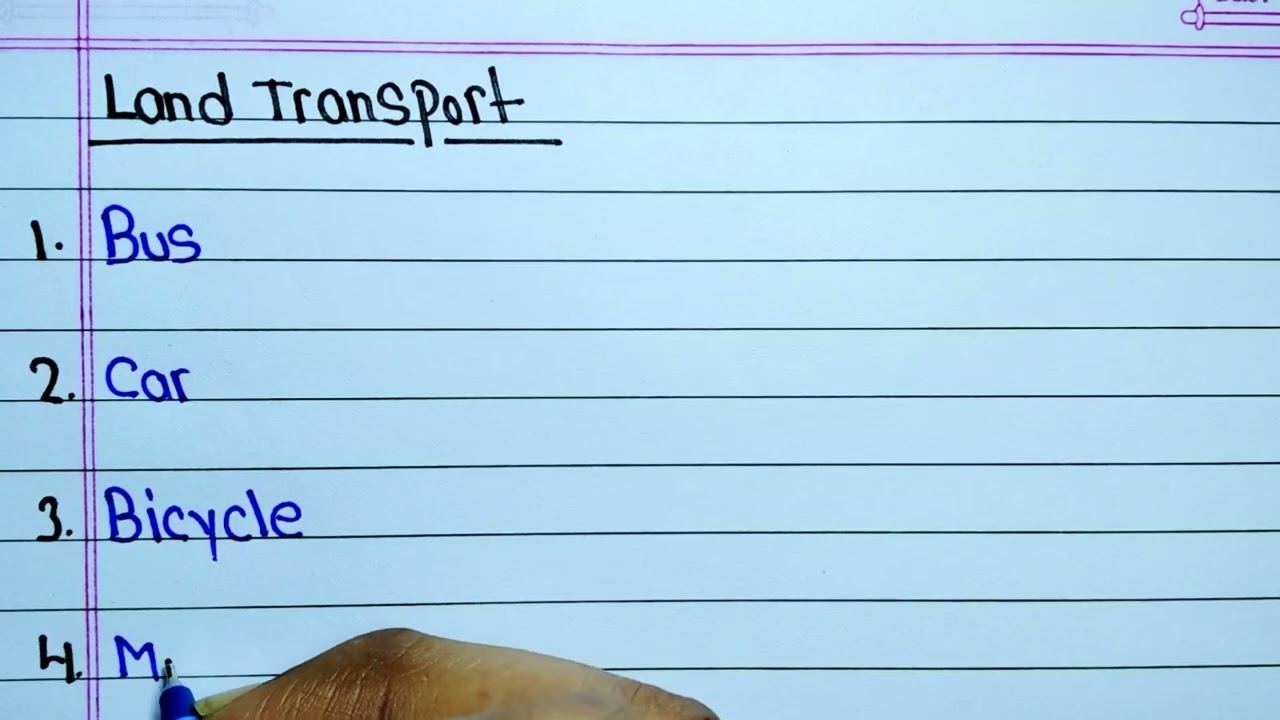 Land Transport
1. Bus
2. Car
3. Bicycle
4. M